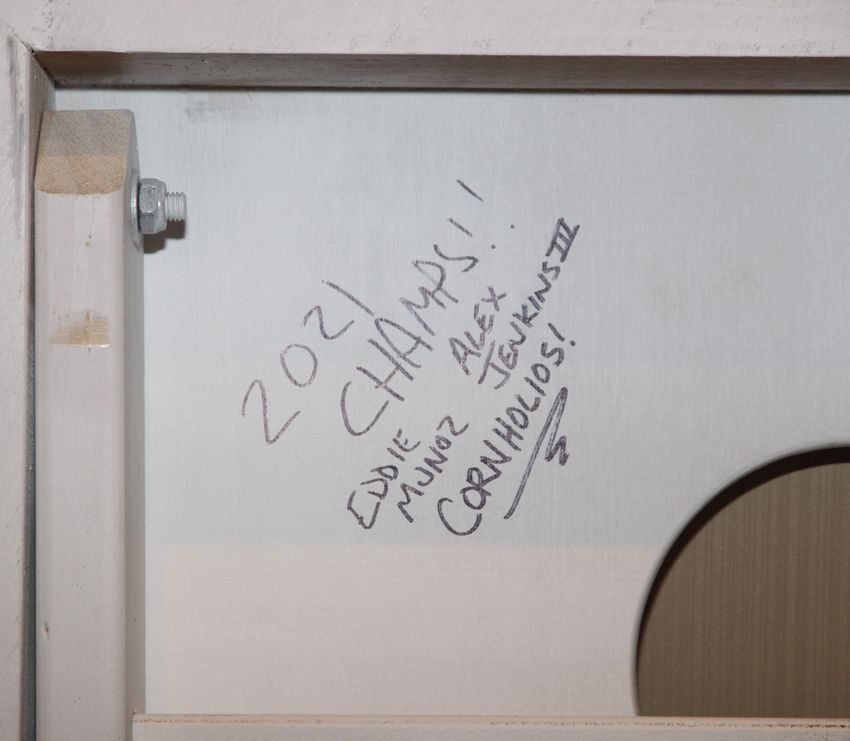 2021
CHAMPS!!
EDDIE
MUNOZ
ALEX
JENKINS III
CORNHOLIOS!